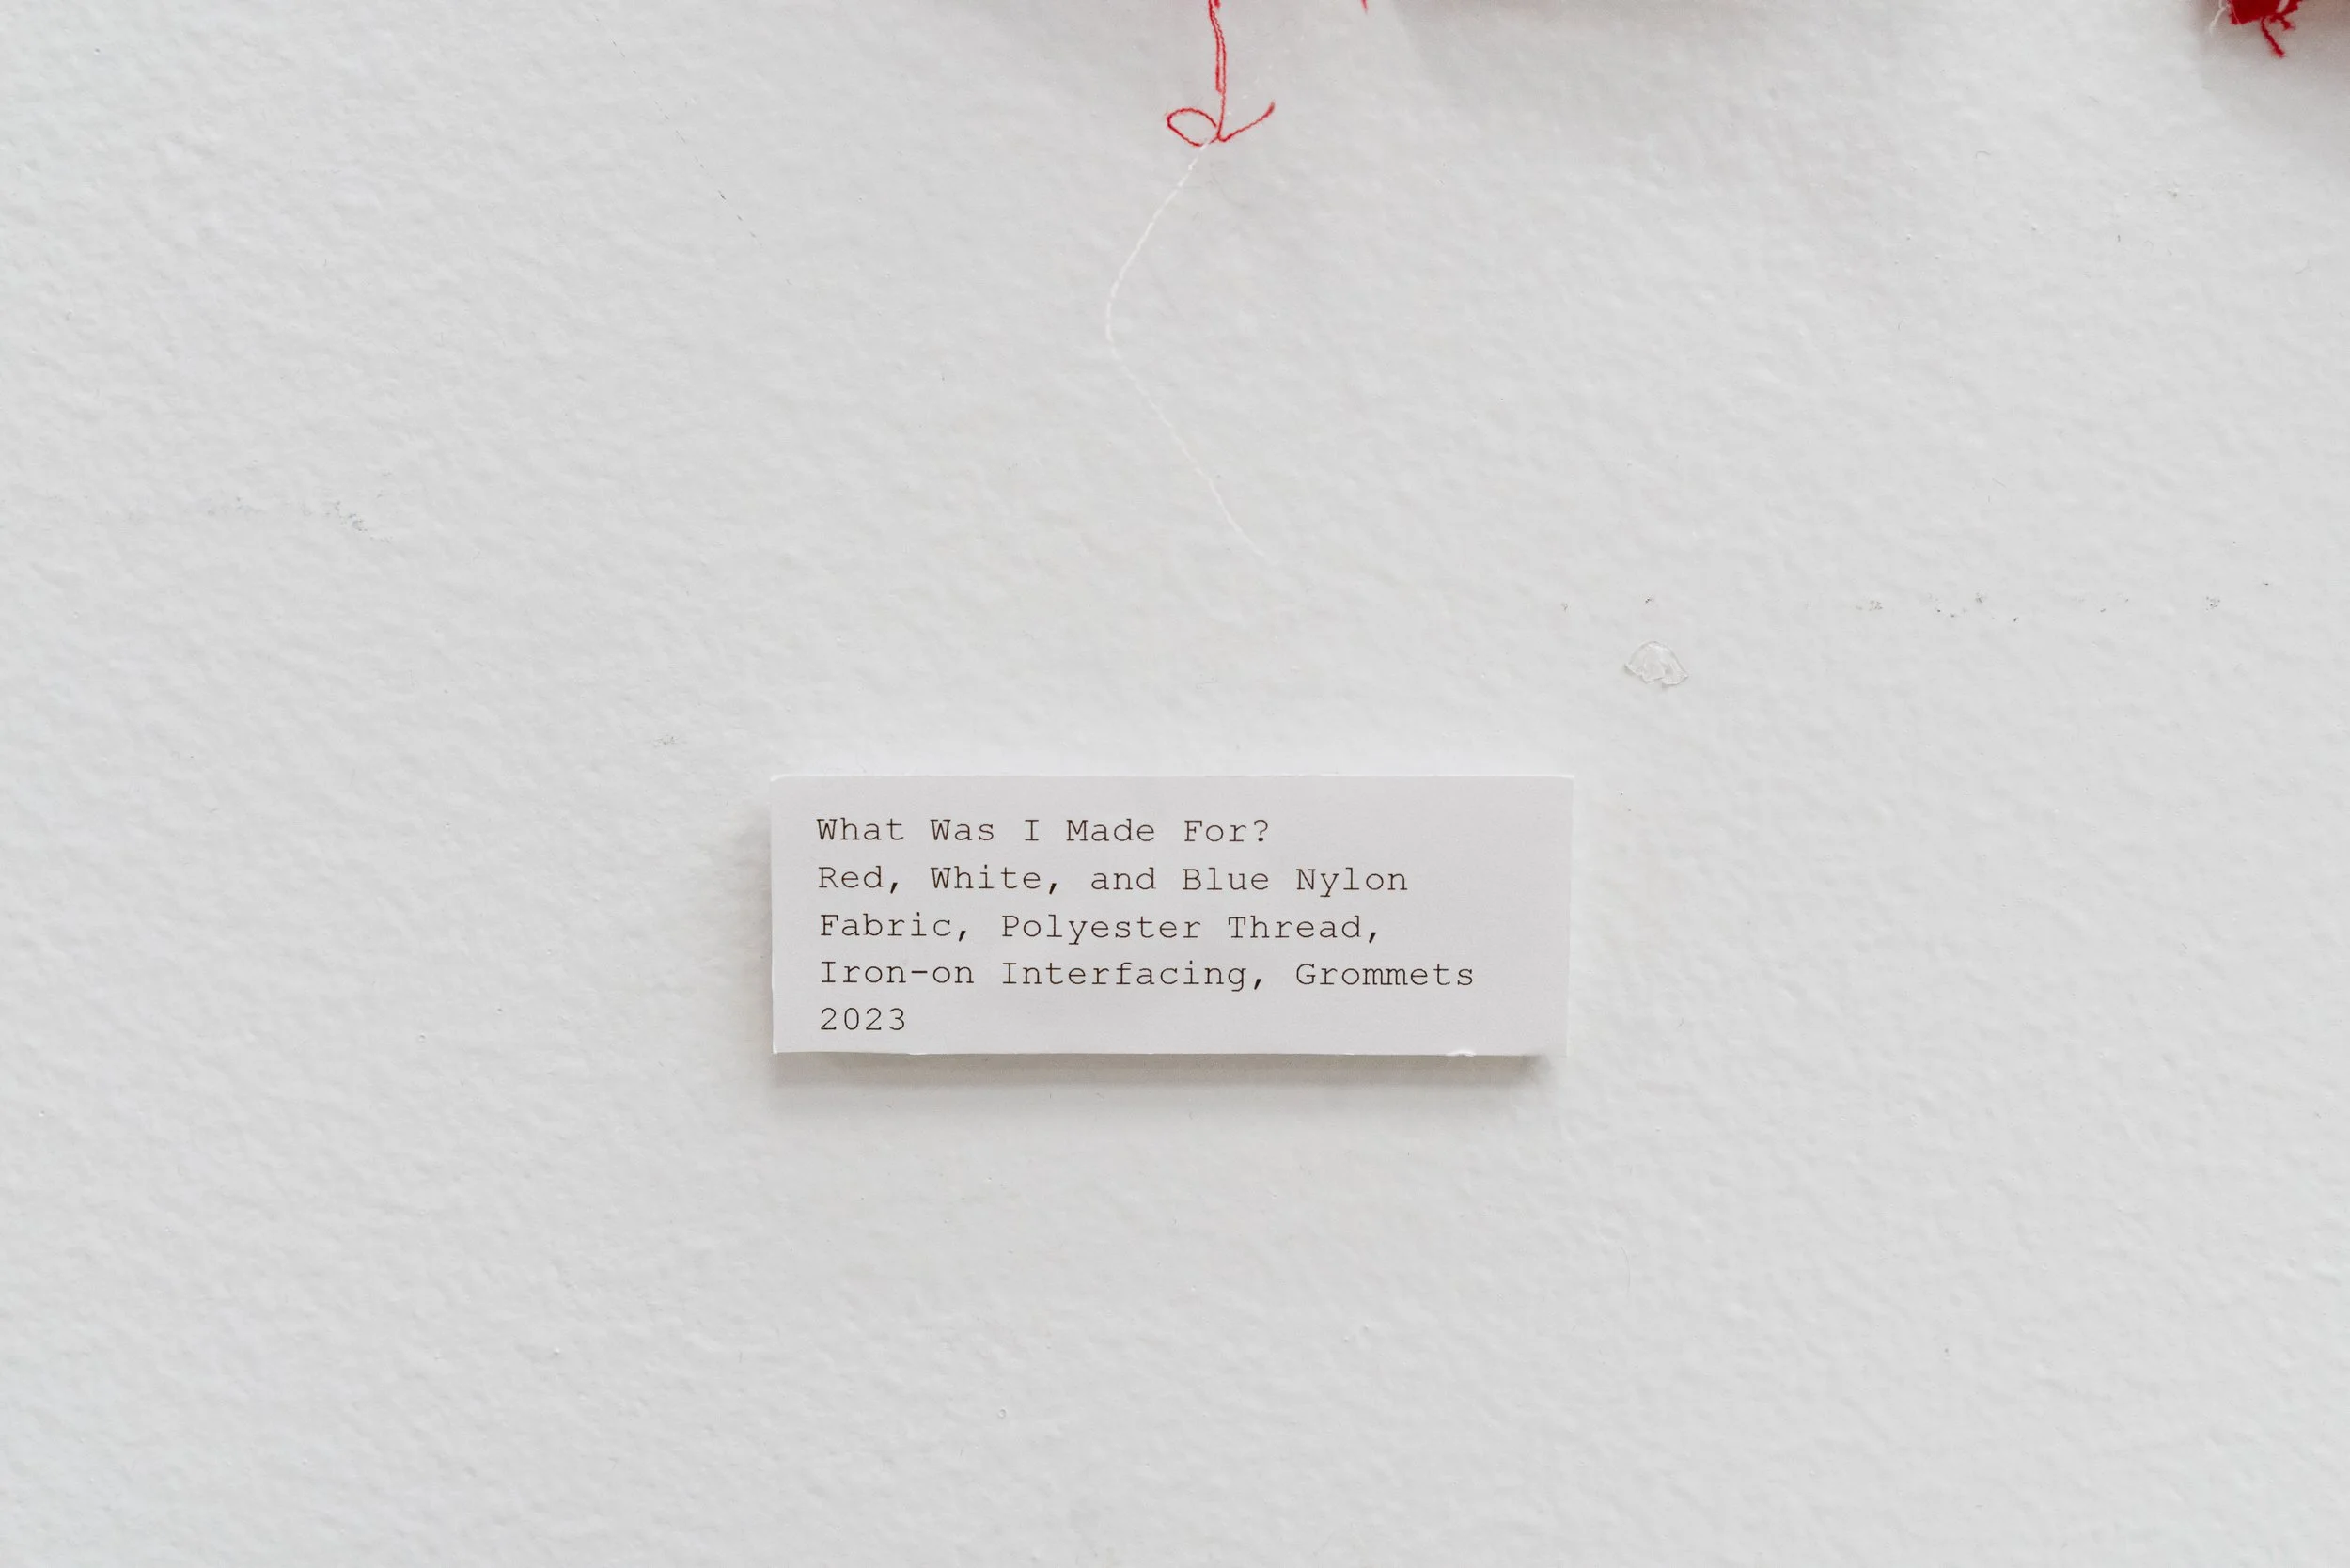 What Was I Made For?
Red, White, and Blue Nylon
Fabric, Polyester Thread,
Iron-on Interfacing, Grommets
2023